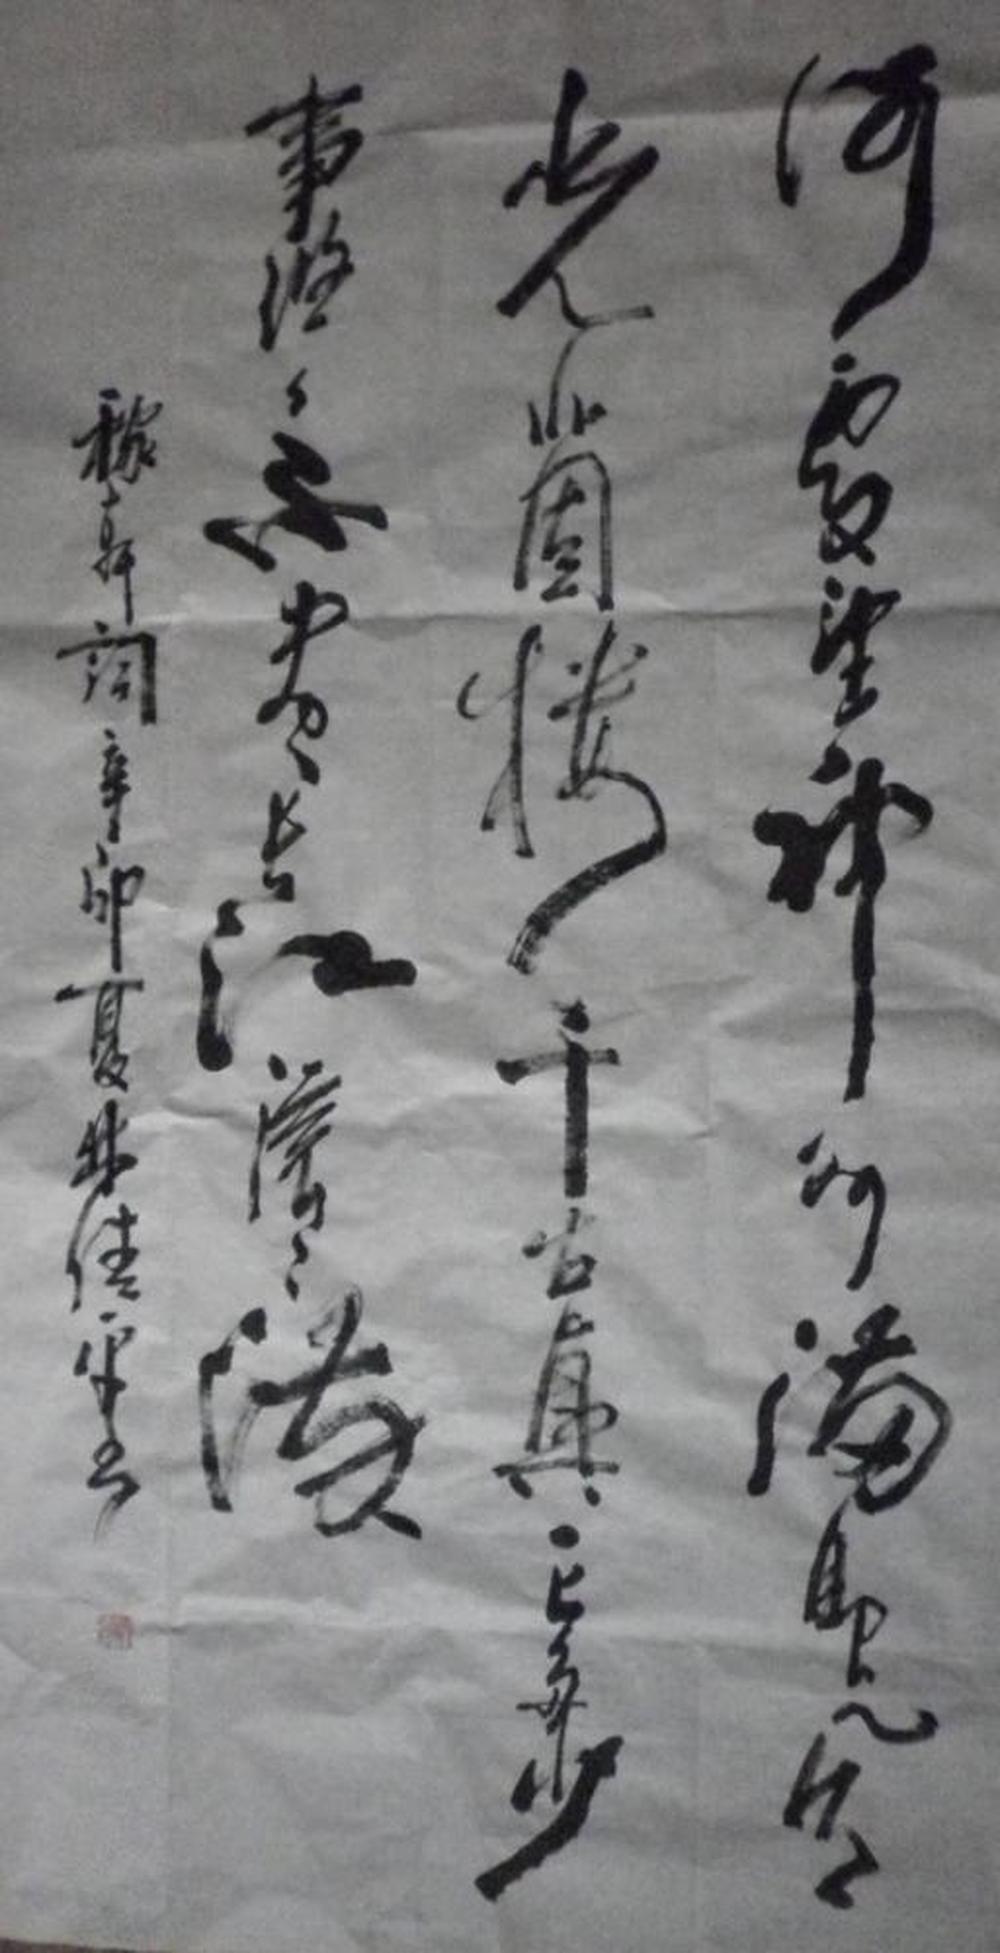 何處望神州滿眼風
光北固樓千古興亡多少
事悠々不盡長江滾々流
稼軒詞辛卯夏林佳平书